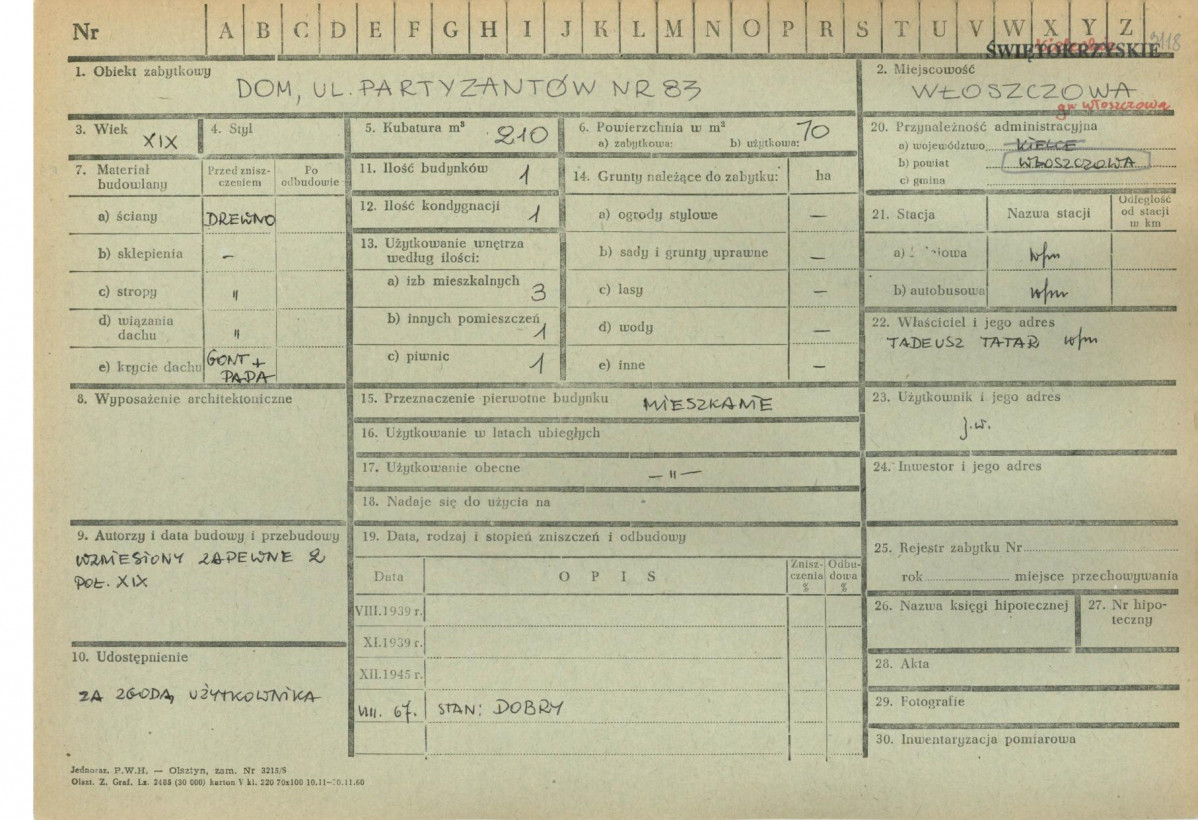 Nr A B C D E F G H I J K L M N O P R S T U V W X Y Z
ŚWIĘTOKRZYSKIE
1. Obiekt zabytkowy
DOM, UL. PARTYZANTÓW NR 83
2. Miejscowość
WŁOSZCZOWA
gm. Włoszczowa
3. Wiek
XIX
4. Styl
5. Kubatura m³
210
6. Powierzchnia w m²
a) zabytkowa: b) użytkowa:
70
20. Przynależność administracyjna
a) województwo KIELCE
b) powiat WŁOSZCZOWA
c) gmina
7. Materiał budowlany
Przed zniszczeniem
Po odbudowie
a) ściany DREWNO
b) sklepienia –
c) stropy "
d) wiązania dachu "
e) krycie dachu GONT + PAPA
8. Wyposażenie architektoniczne
9. Autorzy i data budowy i przebudowy
WZNIESIONY ZAPEWNE 2
POŁ. XIX
10. Udostępnienie
ZA ZGODĄ UŻYTKOWNIKA
11. Ilość budynków 1
12. Ilość kondygnacji 1
13. Użytkowanie wnętrza
według ilości:
a) izb mieszkalnych 3
b) innych pomieszczeń 1
c) piwnic 1
14. Grunty należące do zabytku: ha
a) ogrody stylowe –
b) sady i grunty uprawne –
c) lasy –
d) wody –
e) inne –
15. Przeznaczenie pierwotne budynku MIESZKANIE
16. Użytkowanie w latach ubiegłych
17. Użytkowanie obecne – " –
18. Nadaje się do użycia na
19. Data, rodzaj i stopień zniszczeń i odbudowy
Data
O P I S
Zniszczenia %
Odbudowa %
VIII.1939 r.
XI.1939 r.
XII.1945 r.
VIII. 67. STAN: DOBRY
21. Stacja
Nazwa stacji
Odległość od stacji w km
a)
w/m
b) autobusowa w/m
22. Właściciel i jego adres
TADEUSZ TATAR w/m
23. Użytkownik i jego adres
j.w.
24. Inwestor i jego adres
25. Rejestr zabytku Nr
rok miejsce przechowywania
26. Nazwa księgi hipotecznej
27. Nr hipoteczny
28. Akta
29. Fotografie
30. Inwentaryzacja pomiarowa
Jednoraz. P.W.H. — Olsztyn, zam. Nr 3215/S
Olszt. Z. Graf. Lz. 2485 (30 000) karton V kl. 220 70x100 10.11—30.11.60